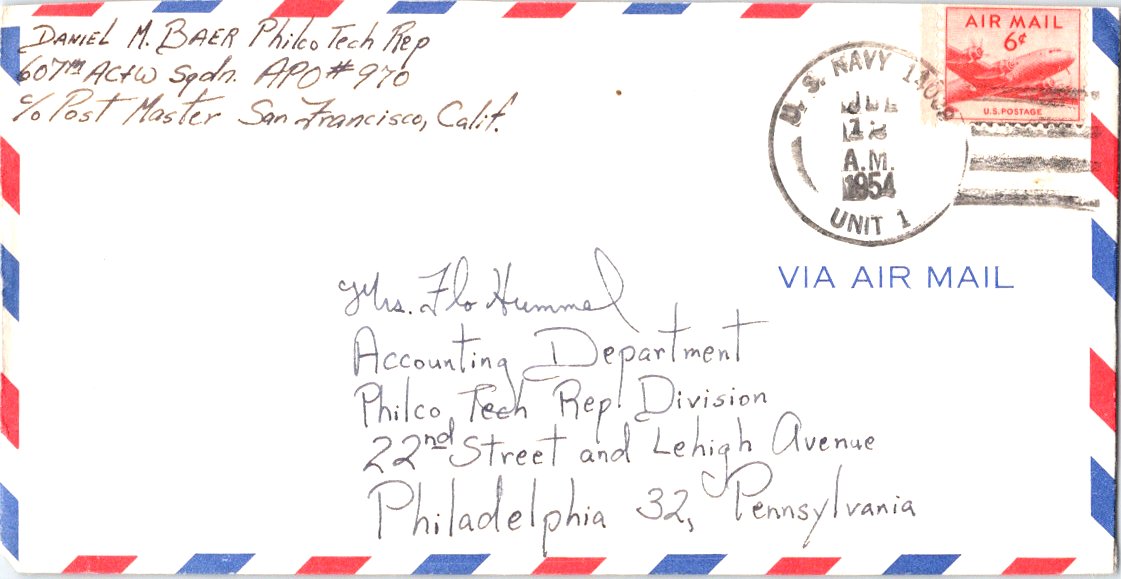 DANIEL M. BAER Philco Tech Rep
607TH AC&W Sqdn. APO # 970
c/o Post Master San Francisco, Calif.
AIR MAIL
6¢
U.S. POSTAGE
U. S. NAVY
A.M.
1954
UNIT 1
VIA AIR MAIL
Mrs. Flo Hummel
Accounting Department
Philco Tech Rep. Division
22nd Street and Lehigh Avenue
Philadelphia 32, Pennsylvania